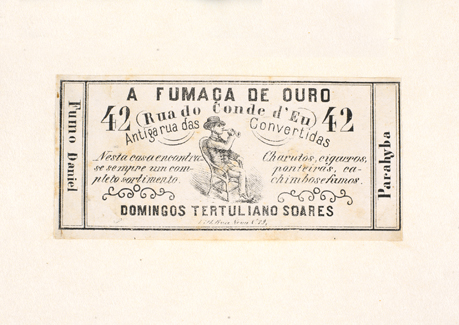 A FUMAÇA DE OURO
42 Rua do Conde d'Eu 42
Antiga rua das Convertidas
Nesta casa encontra
se sempre um com
pleto sortimento.
Charutos, cigarros,
ponteiras, ca-
chimbos e fumos.
DOMINGOS TERTULIANO SOARES
Fumo Daniel
Parahyba